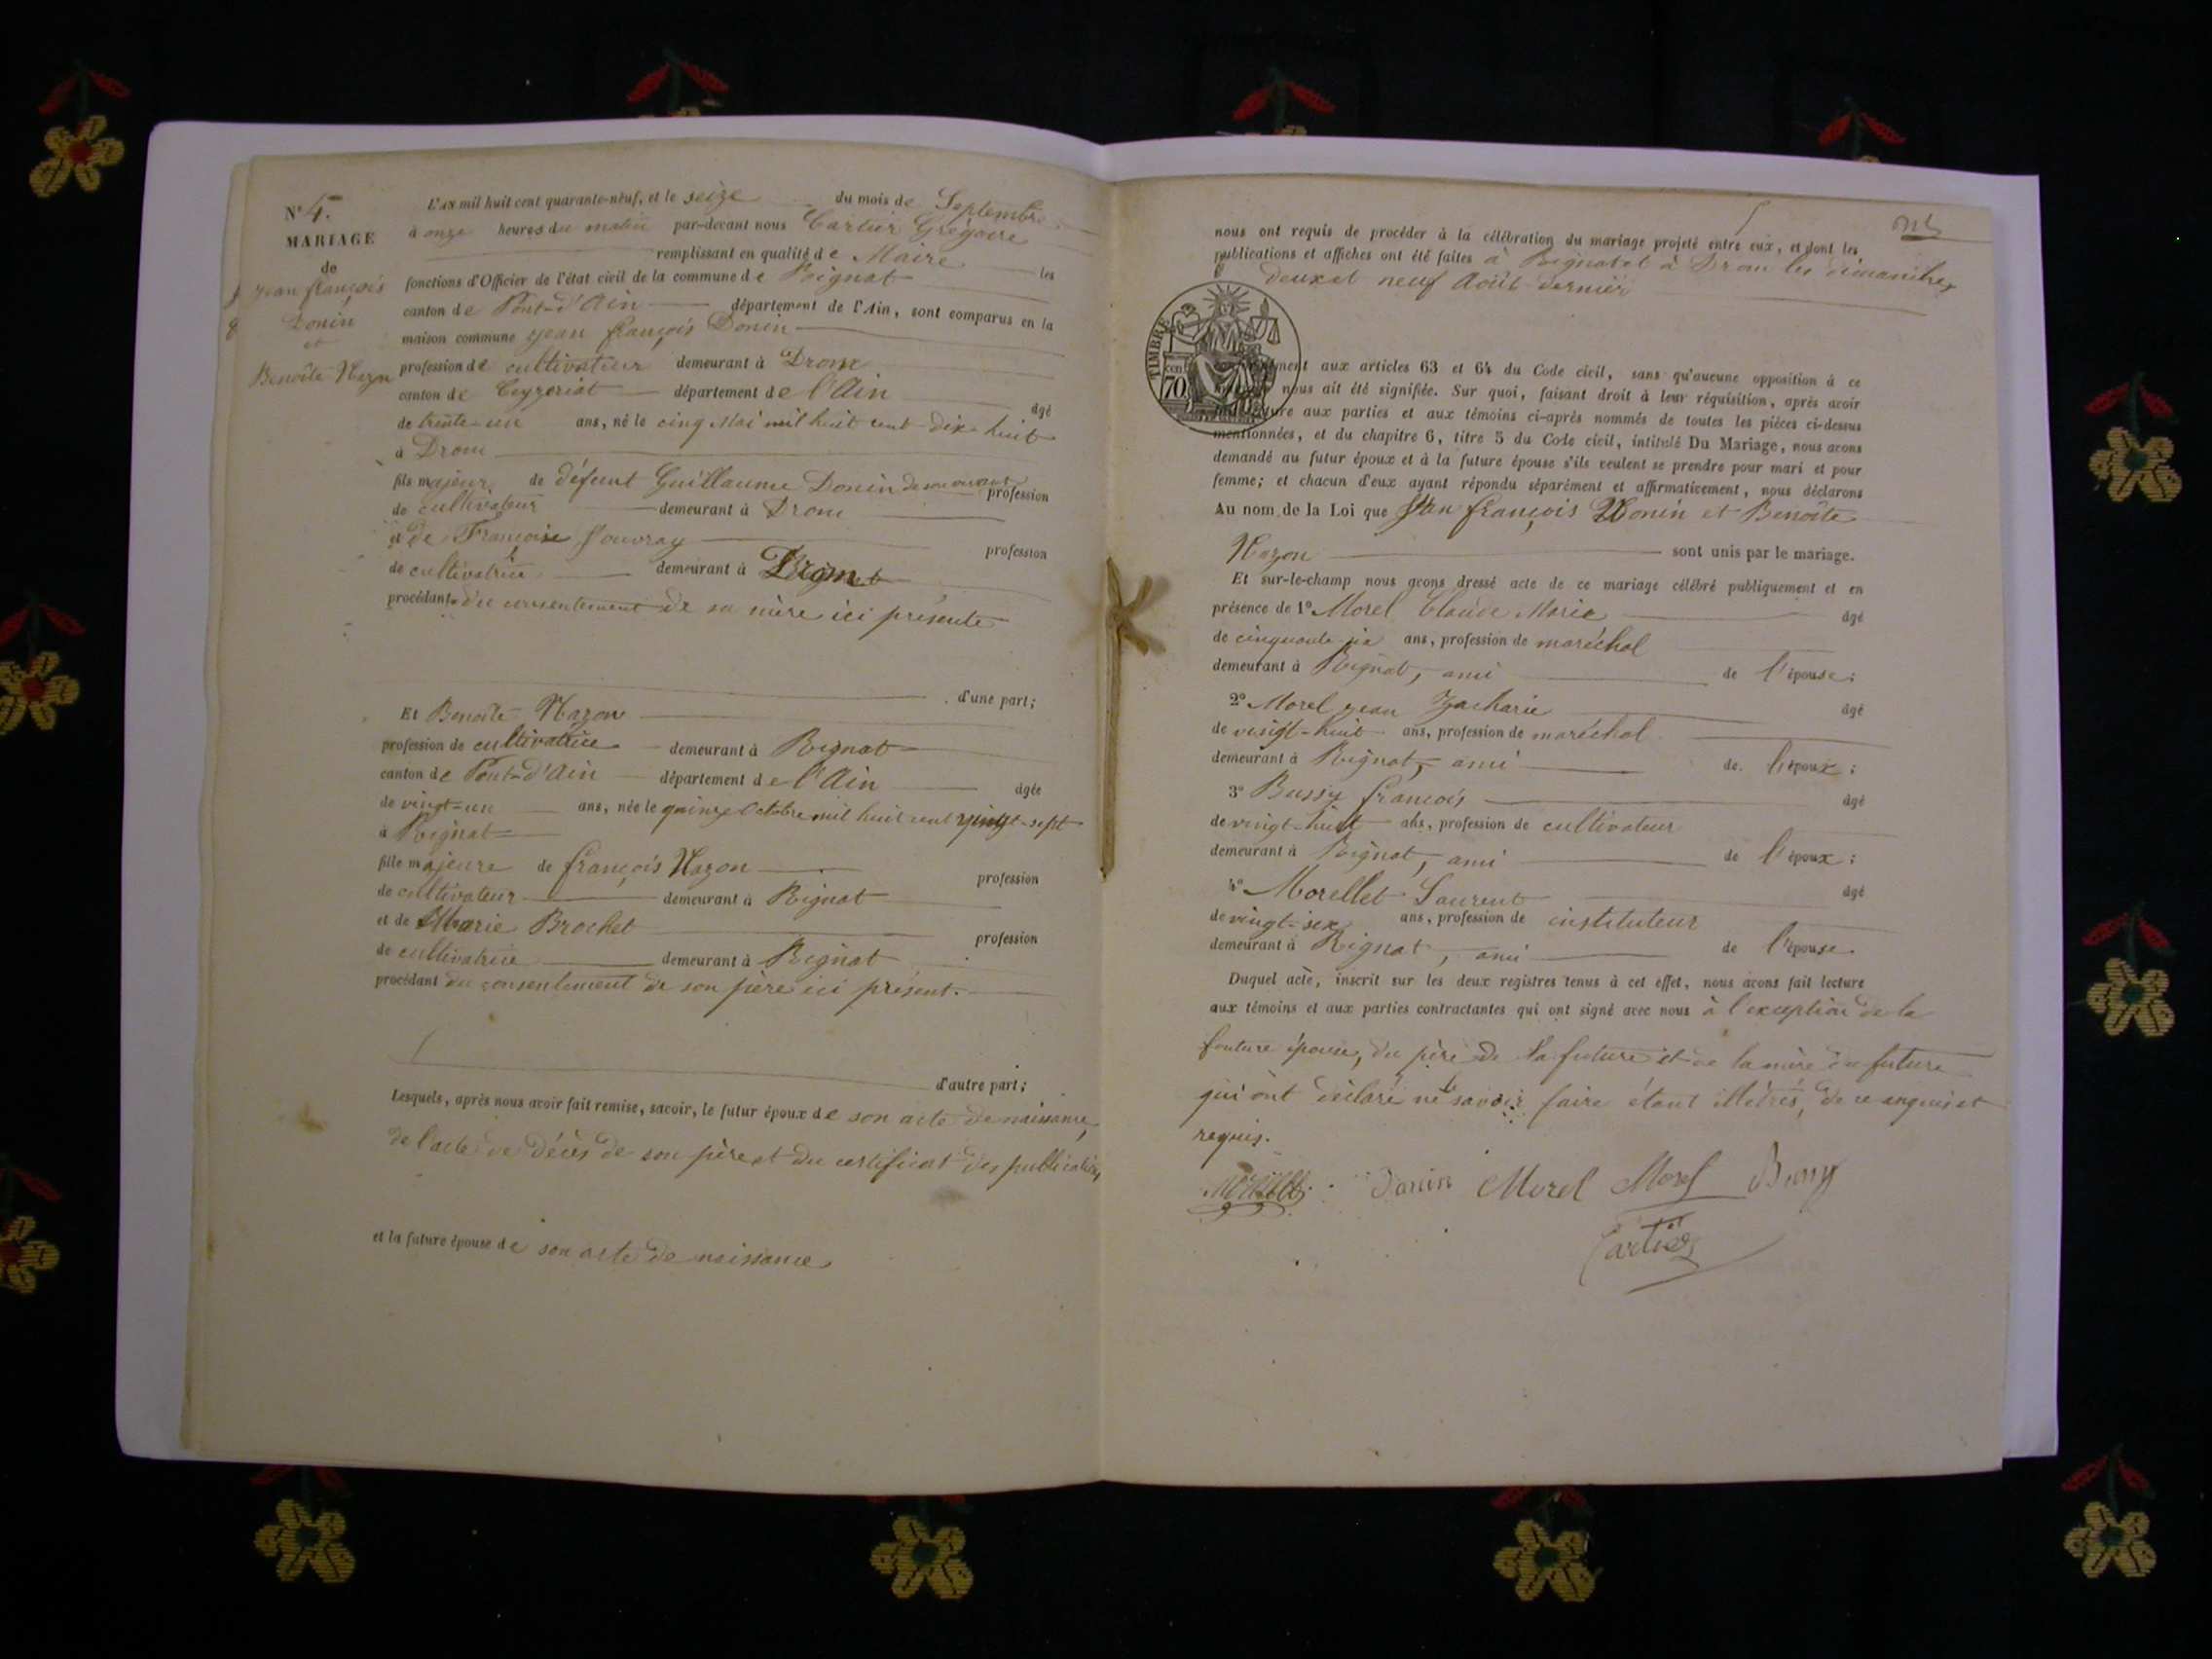 N° 4.
MARIAGE
de
jean françois
Donin
et
Benoîte Nazon
L'AN mil huit cent quarante-neuf, et le seize du mois de Septembre
à onze heures du matin par-devant nous Cartier Grégoire
remplissant en qualité de Maire les
fonctions d'Officier de l'état civil de la commune de Rignat
canton de Pont-d'Ain département de l'Ain, sont comparus en la
maison commune jean françois Donin
profession de cultivateur demeurant à Drom
canton de Ceyzeriat département de l'Ain âgé
de trente-un ans, né le cinq Mai mil huit cent dix-huit
à Drom
fils majeur de défunt Guillaume Donin de son vivant profession
de cultivateur demeurant à Drom
et de Françoise profession
de cultivatrice demeurant à Drom
procédant du consentement de sa mère ici présente
d'une part;
Et Benoîte Nazon
profession de cultivatrice demeurant à Rignat
canton de Pont-d'Ain département de l'Ain âgée
de vingt-un ans, née le quinze Octobre mil huit cent vingt-sept
à Rignat
fille majeure de françois Nazon profession
de cultivateur demeurant à Rignat
et de Marie Brochet profession
de cultivatrice demeurant à Rignat
procédant du consentement de son père ici présent.
d'autre part;
Lesquels, après nous avoir fait remise, savoir, le futur époux de son acte de naissance,
de l'acte de décès de son père et du certificat des publications,
et la future épouse de son acte de naissance
nous ont requis de procéder à la célébration du mariage projeté entre eux, et dont les
publications et affiches ont été faites à Rignat et à Drom les dimanches
deux et neuf Août dernier
TIMBRE
70
aux articles 63 et 64 du Code civil, sans qu'aucune opposition à ce
nous ait été signifiée. Sur quoi, faisant droit à leur réquisition, après avoir
aux parties et aux témoins ci-après nommés de toutes les pièces ci-dessus
mentionnées, et du chapitre 6, titre 5 du Code civil, intitulé Du Mariage, nous avons
demandé au futur époux et à la future épouse s'ils veulent se prendre pour mari et pour
femme; et chacun d'eux ayant répondu séparément et affirmativement, nous déclarons
Au nom de la Loi que Jean françois Donin et Benoîte
Nazon sont unis par le mariage.
Et sur-le-champ nous avons dressé acte de ce mariage célébré publiquement et en
présence de 1° Morel Claude Marie âgé
de cinquante ans, profession de maréchal
demeurant à Rignat, ami de l'épouse;
2° Morel jean Zacharie âgé
de vingt-huit ans, profession de maréchal
demeurant à Rignat, ami de l'époux;
3° Bussy françois âgé
de vingt-huit ans, profession de cultivateur
demeurant à Rignat, ami de l'époux;
4° Morellet Laurent âgé
de vingt-six ans, profession de instituteur
demeurant à Rignat, ami de l'épouse
Duquel acte, inscrit sur les deux registres tenus à cet effet, nous avons fait lecture
aux témoins et aux parties contractantes qui ont signé avec nous à l'exception de la
fouture épouse, du père de la future et de la mère du future
qui ont déclaré ne le savoir faire étant illétrés, de ce enquis et
requis.
Morellet Donin Morel Morel Bussy
Cartier